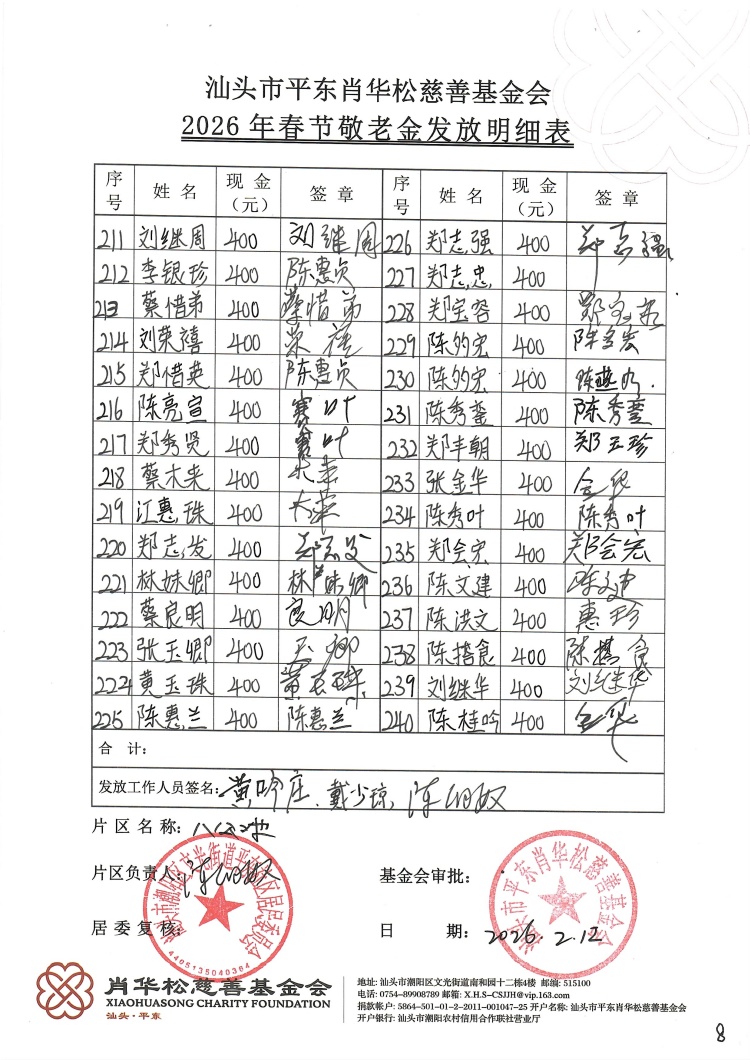 汕头市平东肖华松慈善基金会
2026年春节敬老金发放明细表
序号 姓名 现金（元） 签章 序号 姓名 现金（元） 签章
211 刘继周 400 刘继周 226 郑志强 400 郑志强
212 李银珍 400 陈惠贞 227 郑志忠 400
213 蔡惜弟 400 蔡惜弟 228 郑宝容 400
214 刘荣禧 400 荣禧 229 陈昀宏 400
215 郑惜英 400 陈惠贞 230 陈昀宏 400
216 陈亮宣 400 赛叶 231 陈秀銮 400 陈秀銮
217 郑秀贤 400 赛叶 232 郑丰朝 400 郑玉珍
218 蔡木来 400 233 张金华 400 金华
219 江惠珠 400 234 陈秀叶 400 陈秀叶
220 郑志发 400 郑志发 235 郑会宏 400 郑会宏
221 林妹卿 400 林妹卿 236 陈文建 400 陈文建
222 蔡良明 400 良明 237 陈洪文 400 惠珍
223 张玉卿 400 玉卿 238 陈搭食 400 陈搭食
224 黄玉珠 400 黄玉珠 239 刘继华 400 刘继华
225 陈惠兰 400 陈惠兰 240 陈桂吟 400 金华
合计：
发放工作人员签名：黄吟庄、戴少琼、
片区名称：
片区负责人
基金会审批：
居委复核
日期：2026.2.12
4405135040384
汕头市平东肖华松慈善基金会
肖华松慈善基金会
XIAOHUASONG CHARITY FOUNDATION
汕头·平东
地址: 汕头市潮阳区文光街道南和园十二栋4楼 邮编: 515100
电话: 0754-89908789 邮箱: X.H.S-CSJJH@vip.163.com
捐款帐户: 5864-501-01-2-2011-001047-25 开户名称: 汕头市平东肖华松慈善基金会
开户银行: 汕头市潮阳农村信用合作联社营业厅
8